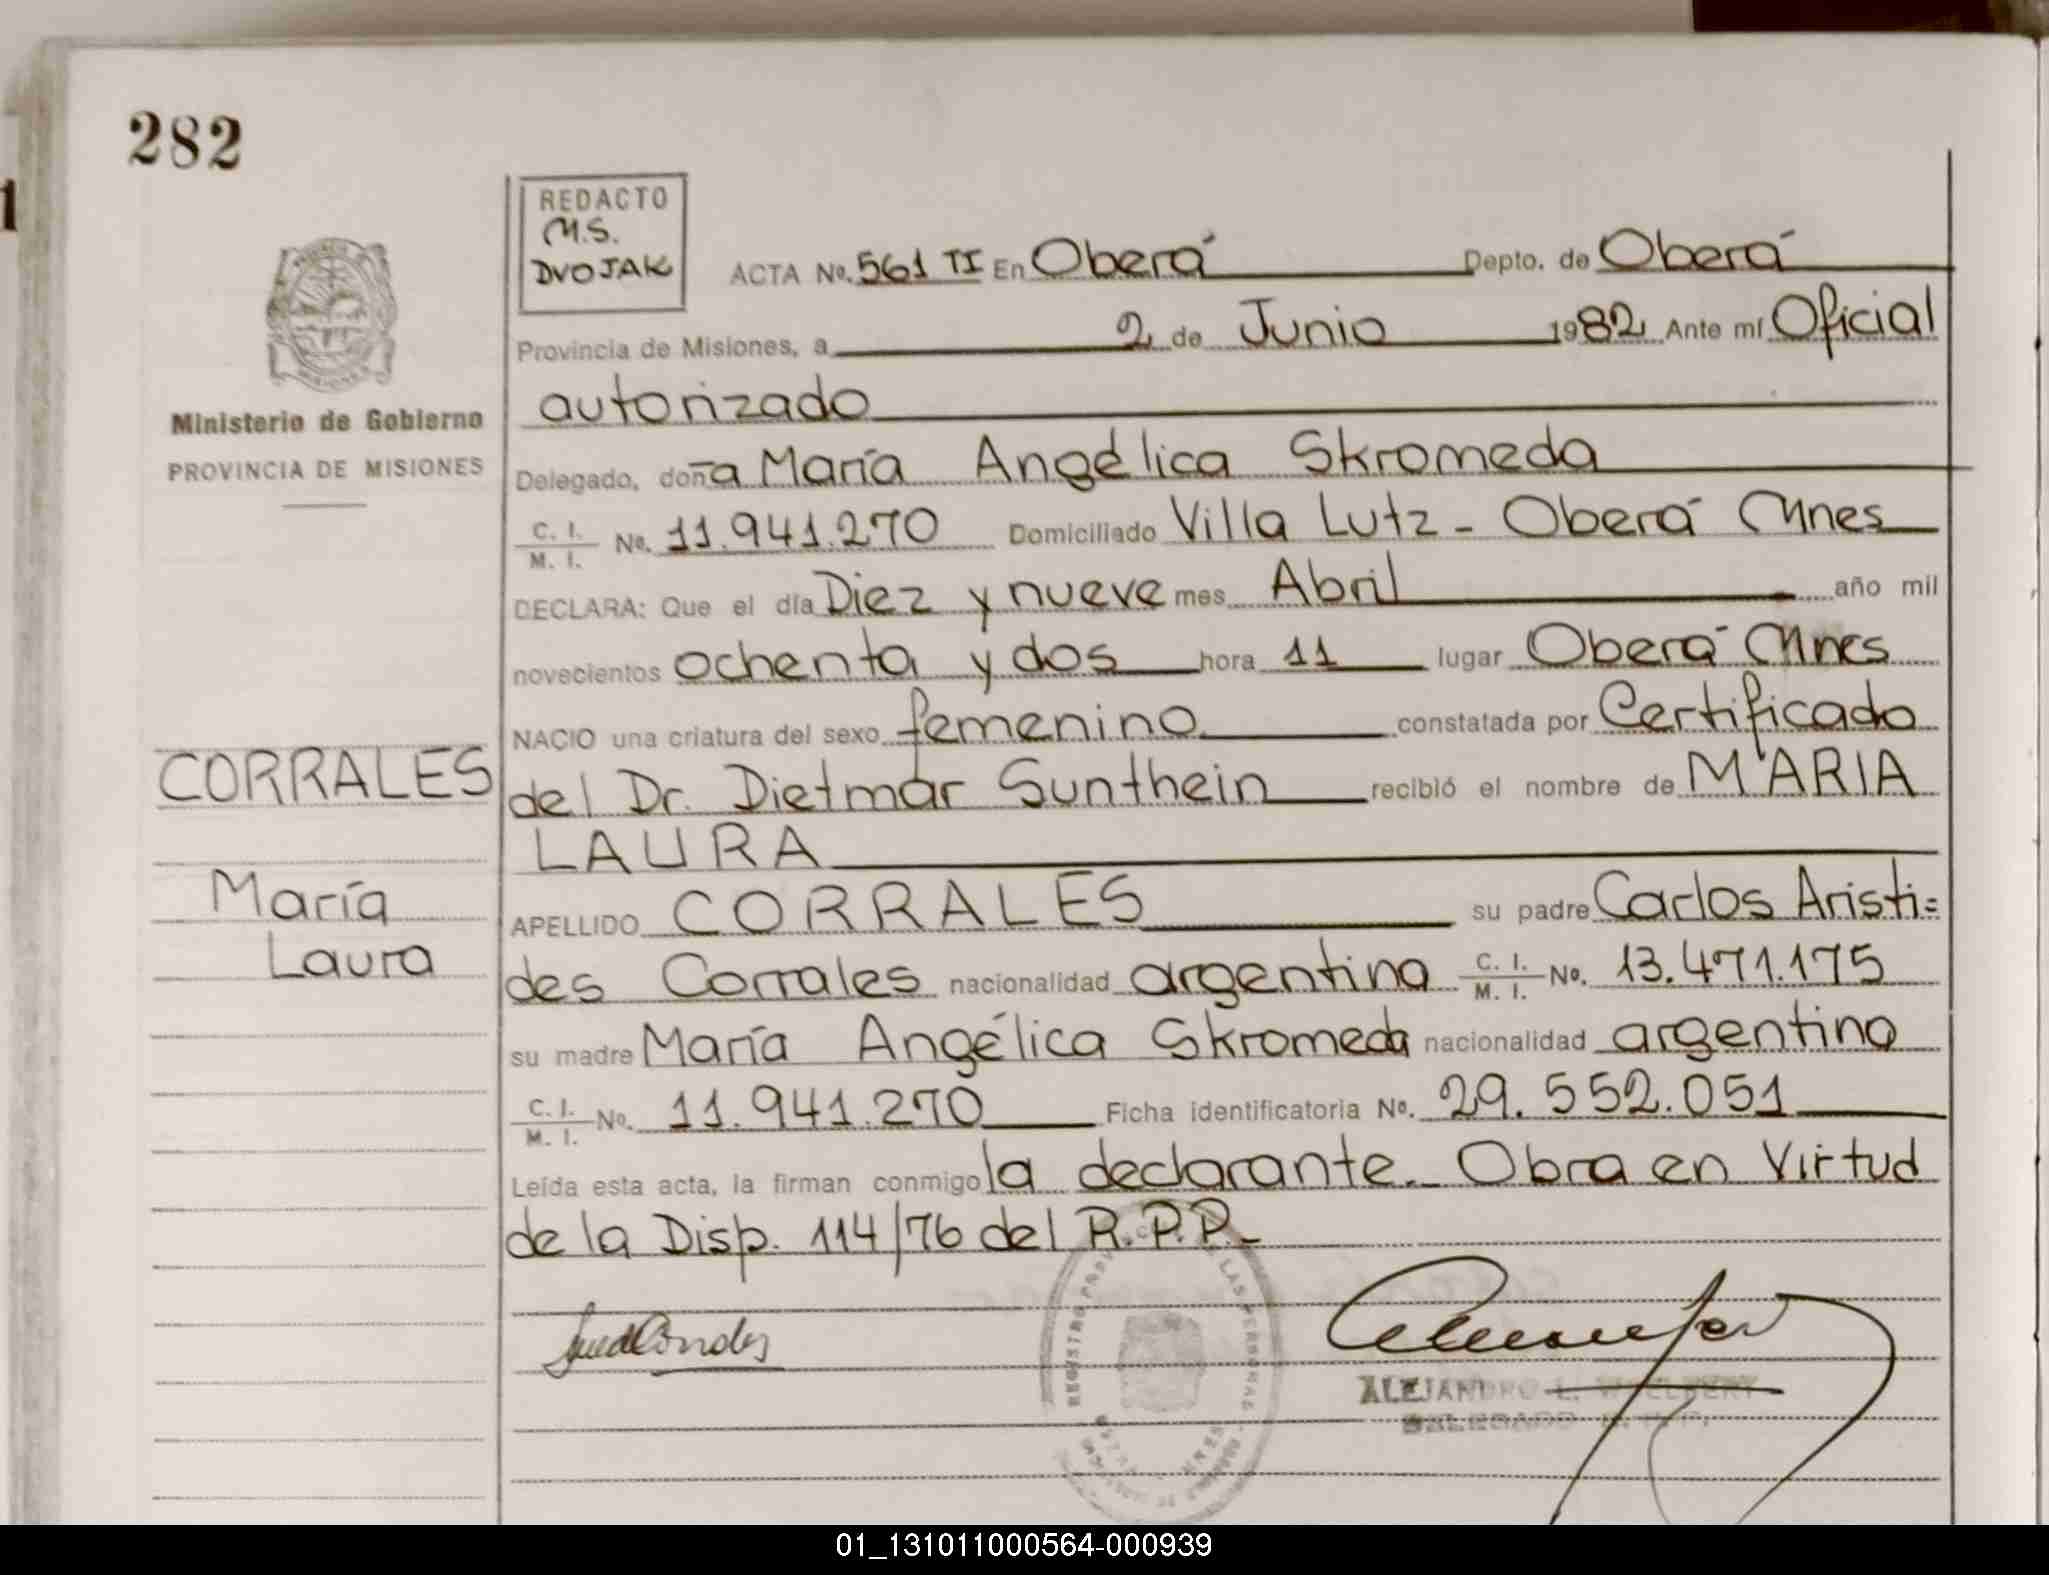 282
REDACTO
M.S.
DVOJAK
ACTA No. 561 TI En Oberá Depto. de Oberá
Provincia de Misiones, a 2 de Junio 1982 Ante mí Oficial
autorizado
Ministerio de Gobierno
PROVINCIA DE MISIONES
Delegado, doña María Angélica Skromeda
C. I.
M. I. No. 11.941.270 Domiciliado Villa Lutz - Oberá Mnes
DECLARA: Que el día Diez y nueve mes Abril año mil
novecientos ochenta y dos hora 11 lugar Oberá Mnes
NACIO una criatura del sexo femenino constatada por Certificado
del Dr. Dietmar Sunthein recibió el nombre de MARIA
LAURA
CORRALES
María
Laura
APELLIDO CORRALES su padre Carlos Aristi=
des Corrales nacionalidad argentina C. I.
M. I. No. 13.471.175
su madre María Angélica Skromeda nacionalidad argentina
C. I.
M. I. No. 11.941.270 Ficha identificatoria No. 29.552.051
Leída esta acta, la firman conmigo la declarante. Obra en Virtud
de la Disp. 114/76 del R.P.P.-
REGISTRO PROV LAS PERSONAS
MNES
ALEJANDRO L.
DELEGADO
01_131011000564-000939